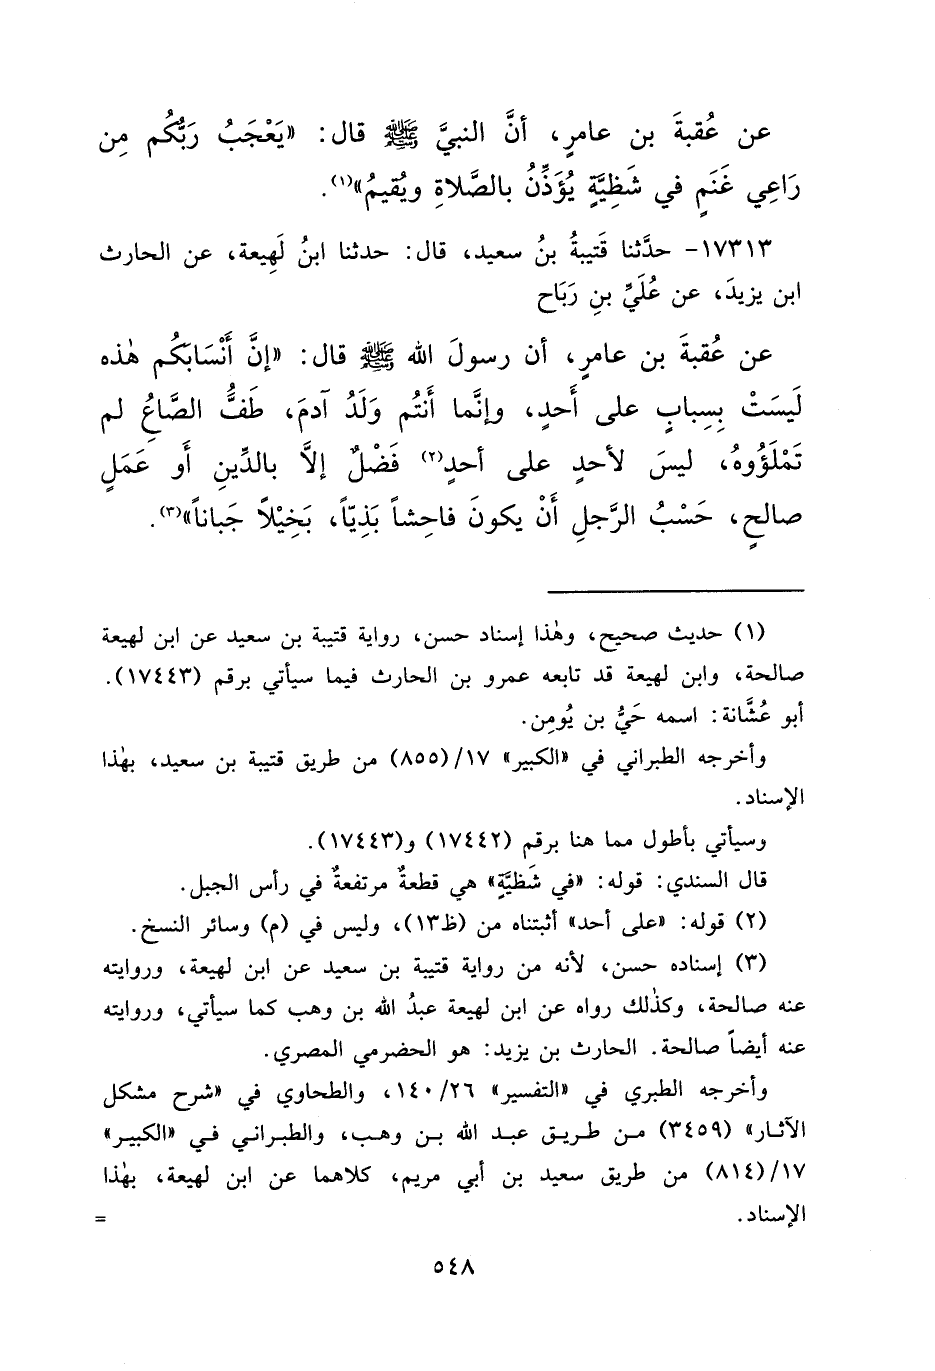 عن عُقبةَ بن عامرٍ، أنَّ النبيَّ ﷺ قال: «يَعْجَبُ رَبُّكُم مِن
رَاعِي غَنَمٍ في شَظِيَّةٍ يُؤَذِّنُ بالصَّلاةِ ويُقيمُ»(١).
١٧٣١٣- حدَّثنا قَتيبةُ بنُ سعيد، قال: حدثنا ابنُ لَهِيعة، عن الحارث
ابن يزيدَ، عن عُلَيِّ بنِ رَبَاح
عن عُقبةَ بن عامرٍ، أن رسولَ الله ﷺ قال: «إنَّ أَنْسَابَكُم هٰذه
لَيسَتْ بِسِبابٍ على أَحدٍ، وإنَّما أَنتُم وَلَدُ آدمَ، طَفُّ الصَّاعِ لم
تَمْلَؤُوهُ، ليسَ لأحدٍ على أحدٍ(٢) فَضْلٌ إلاَّ بالدِّينِ أَو عَمَلٍ
صالحٍ، حَسْبُ الرَّجلِ أَنْ يكونَ فاحِشاً بَذِيّاً، بَخِيْلاً جَباناً»(٣).
(١) حديث صحيح، وهٰذا إسناد حسن، رواية قتيبة بن سعيد عن ابن لهيعة
صالحة، وابن لهيعة قد تابعه عمرو بن الحارث فيما سيأتي برقم (١٧٤٤٣).
أبو عُشَّانة: اسمه حَيُّ بن يُومِن.
وأخرجه الطبراني في «الكبير» ١٧/(٨٥٥) من طريق قتيبة بن سعيد، بهٰذا
الإسناد.
وسيأتي بأطول مما هنا برقم (١٧٤٤٢) و(١٧٤٤٣).
قال السندي: قوله: «في شَظِيَّةٍ» هي قطعةٌ مرتفعةٌ في رأس الجبل.
(٢) قوله: «على أحد» أثبتناه من (ظ١٣)، وليس في (م) وسائر النسخ.
(٣) إسناده حسن، لأنه من رواية قتيبة بن سعيد عن ابن لهيعة، وروايته
عنه صالحة، وكذٰلك رواه عن ابن لهيعة عبدُ الله بن وهب كما سيأتي، وروايته
عنه أيضاً صالحة. الحارث بن يزيد: هو الحضرمي المصري.
وأخرجه الطبري في «التفسير» ١٤٠/٢٦، والطحاوي في «شرح مشكل
الآثار» (٣٤٥٩) من طريق عبد الله بن وهب، والطبراني في «الكبير»
١٧/(٨١٤) من طريق سعيد بن أبي مريم، كلاهما عن ابن لهيعة، بهٰذا
الإسناد. =
٥٤٨